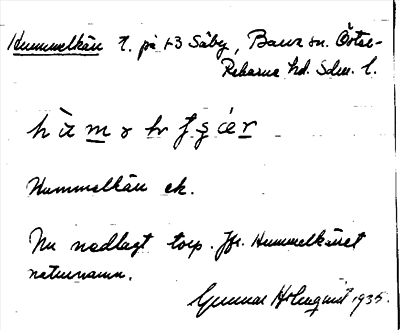 Hummelkärr t. på 1-3 Säby, Barva sn. Öster-
Rekarne hd. Sdm. l.
Hummelkärr ek.
Nu nedlagt torp. Jfr. Hummelkärret
naturnamn.
Gunnar Holmquist 1935.